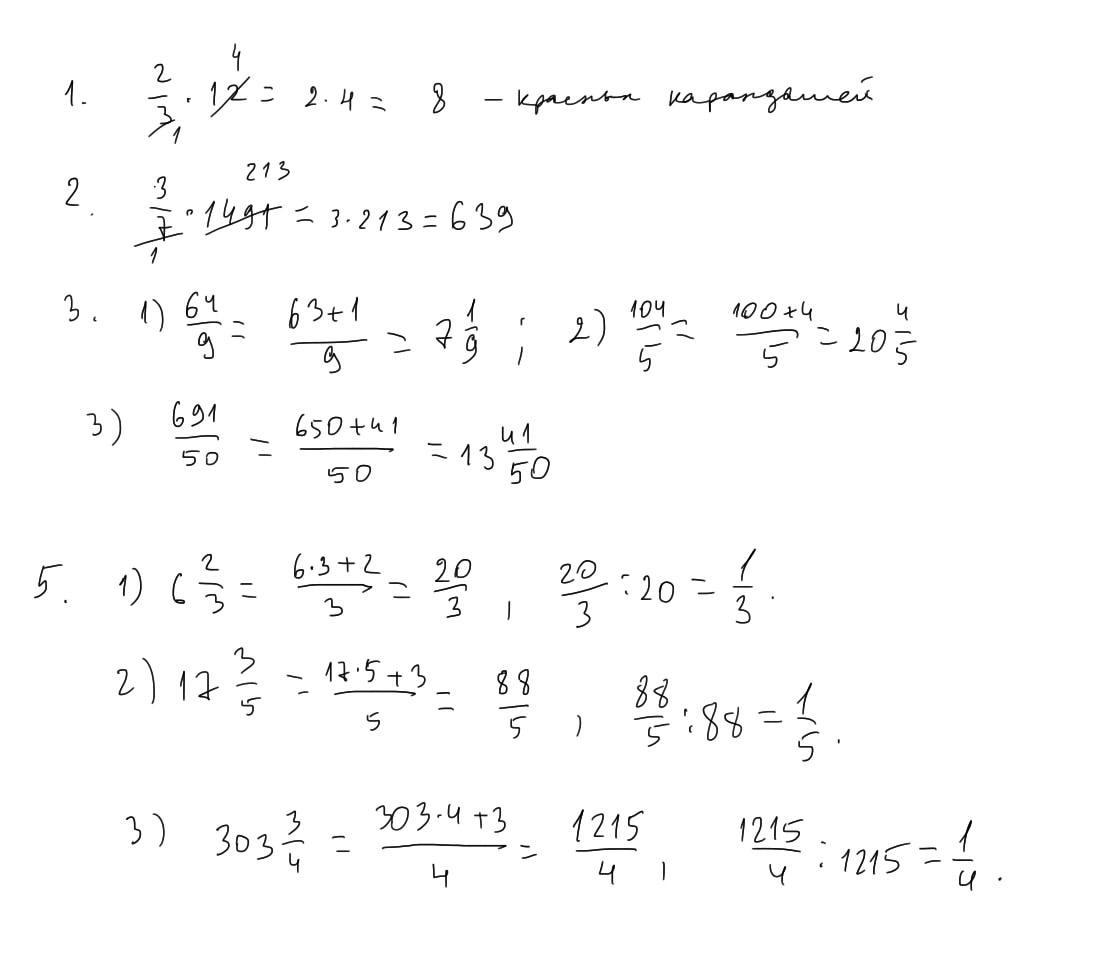 1. 2/3 · 12 = 2·4 = 8 – красных карандашей
2. 3/7 · 1491 = 3·213 = 639
3. 1) 64/9 = (63+1)/9 = 7 1/9 ; 2) 104/5 = (100+4)/5 = 20 4/5
3) 691/50 = (650+41)/50 = 13 41/50
5. 1) 6 2/3 = (6·3+2)/3 = 20/3 , 20/3 : 20 = 1/3 .
2) 17 3/5 = (17·5+3)/5 = 88/5 , 88/5 : 88 = 1/5 .
3) 303 3/4 = (303·4+3)/4 = 1215/4 , 1215/4 : 1215 = 1/4 .